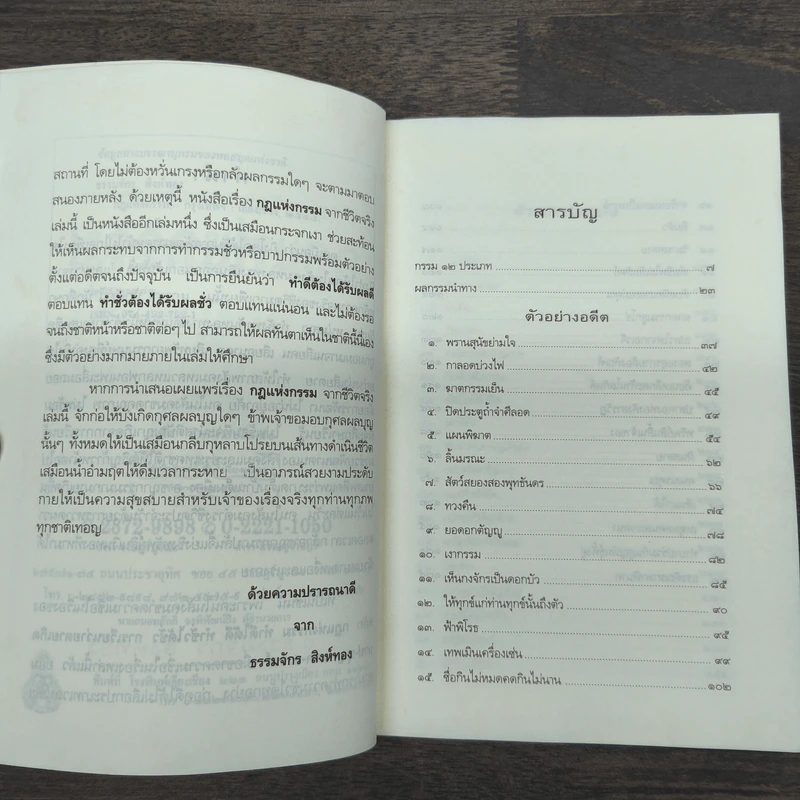 สถานที่ โดยไม่ต้องหวั่นเกรงหรือกลัวผลกรรมใดๆ จะตามมาตอบ
สนองภายหลัง ด้วยเหตุนี้ หนังสือเรื่อง กฎแห่งกรรม จากชีวิตจริง
เล่มนี้ เป็นหนังสืออีกเล่มหนึ่ง ซึ่งเป็นเสมือนกระจกเงา ช่วยสะท้อน
ให้เห็นผลกระทบจากการทำกรรมชั่วหรือบาปกรรมพร้อมตัวอย่าง
ตั้งแต่อดีตจนถึงปัจจุบัน เป็นการยืนยันว่า ทำดีต้องได้รับผลดี
ตอบแทน ทำชั่วต้องได้รับผลชั่ว ตอบแทนแน่นอน และไม่ต้องรอ
จนถึงชาติหน้าหรือชาติต่อๆ ไป สามารถให้ผลทันตาเห็นในชาตินี้นี่เอง
ซึ่งมีตัวอย่างมากมายภายในเล่มให้ศึกษา
หากการนำเสนอเผยแพร่เรื่อง กฎแห่งกรรม จากชีวิตจริง
เล่มนี้ จักก่อให้บังเกิดกุศลผลบุญใดๆ ข้าพเจ้าขอมอบกุศลผลบุญ
นั้นๆ ทั้งหมดให้เป็นเสมือนกลีบกุหลาบโปรยบนเส้นทางดำเนินชีวิต
เสมือนน้ำอำมฤตให้ดื่มเวลากระหาย เป็นอาภรณ์สวยงามประดับ
กายให้เป็นความสุขสบายสำหรับเจ้าของเรื่องจริงทุกท่านทุกภพ
ทุกชาติเทอญ
ด้วยความปรารถนาดี
จาก
ธรรมจักร สิงห์ทอง
สารบัญ
กรรม ๑๒ ประเภท ๗
ผลกรรมนำทาง ๒๓
ตัวอย่างอดีต
๑. พรานสุนัขย่ามใจ ๓๗
๒. กาลอดบ่วงไฟ ๔๒
๓. ฆาตกรรมเย็น ๔๕
๔. ปิดประตูถ้ำจำศีลอด ๔๙
๕. แผนพิฆาต ๕๔
๖. ลิ้นมรณะ ๖๒
๗. สัตว์สยองสองพุทธันดร ๖๖
๘. ทวงคืน ๗๔
๙. ยอดอกตัญญู ๗๘
๑๐. เงากรรม ๘๒
๑๑. เห็นกงจักรเป็นดอกบัว ๘๕
๑๒. ให้ทุกข์แก่ท่านทุกข์นั้นถึงตัว ๙๐
๑๓. ฟ้าพิโรธ ๙๕
๑๔. เทพเมินเครื่องเซ่น ๙๙
๑๕. ซื่อกินไม่หมดคดกินไม่นาน ๑๐๒